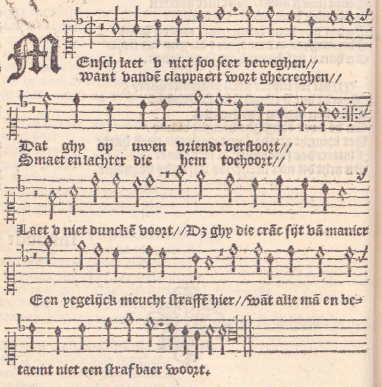 MEnsch laet v niet soo seer beweghen//
Want vandē clappaert wort ghecreghen//
Dat ghy op uwen vriendt verstoort//
Smaet en lachter die hem toehoort//
Laet v niet dunckē voort//Dz ghy die crāc sijt vā manier
Een yegelijck nieucht straffē hier//wāt alle mā en be=
taemt niet een straf baer woort.